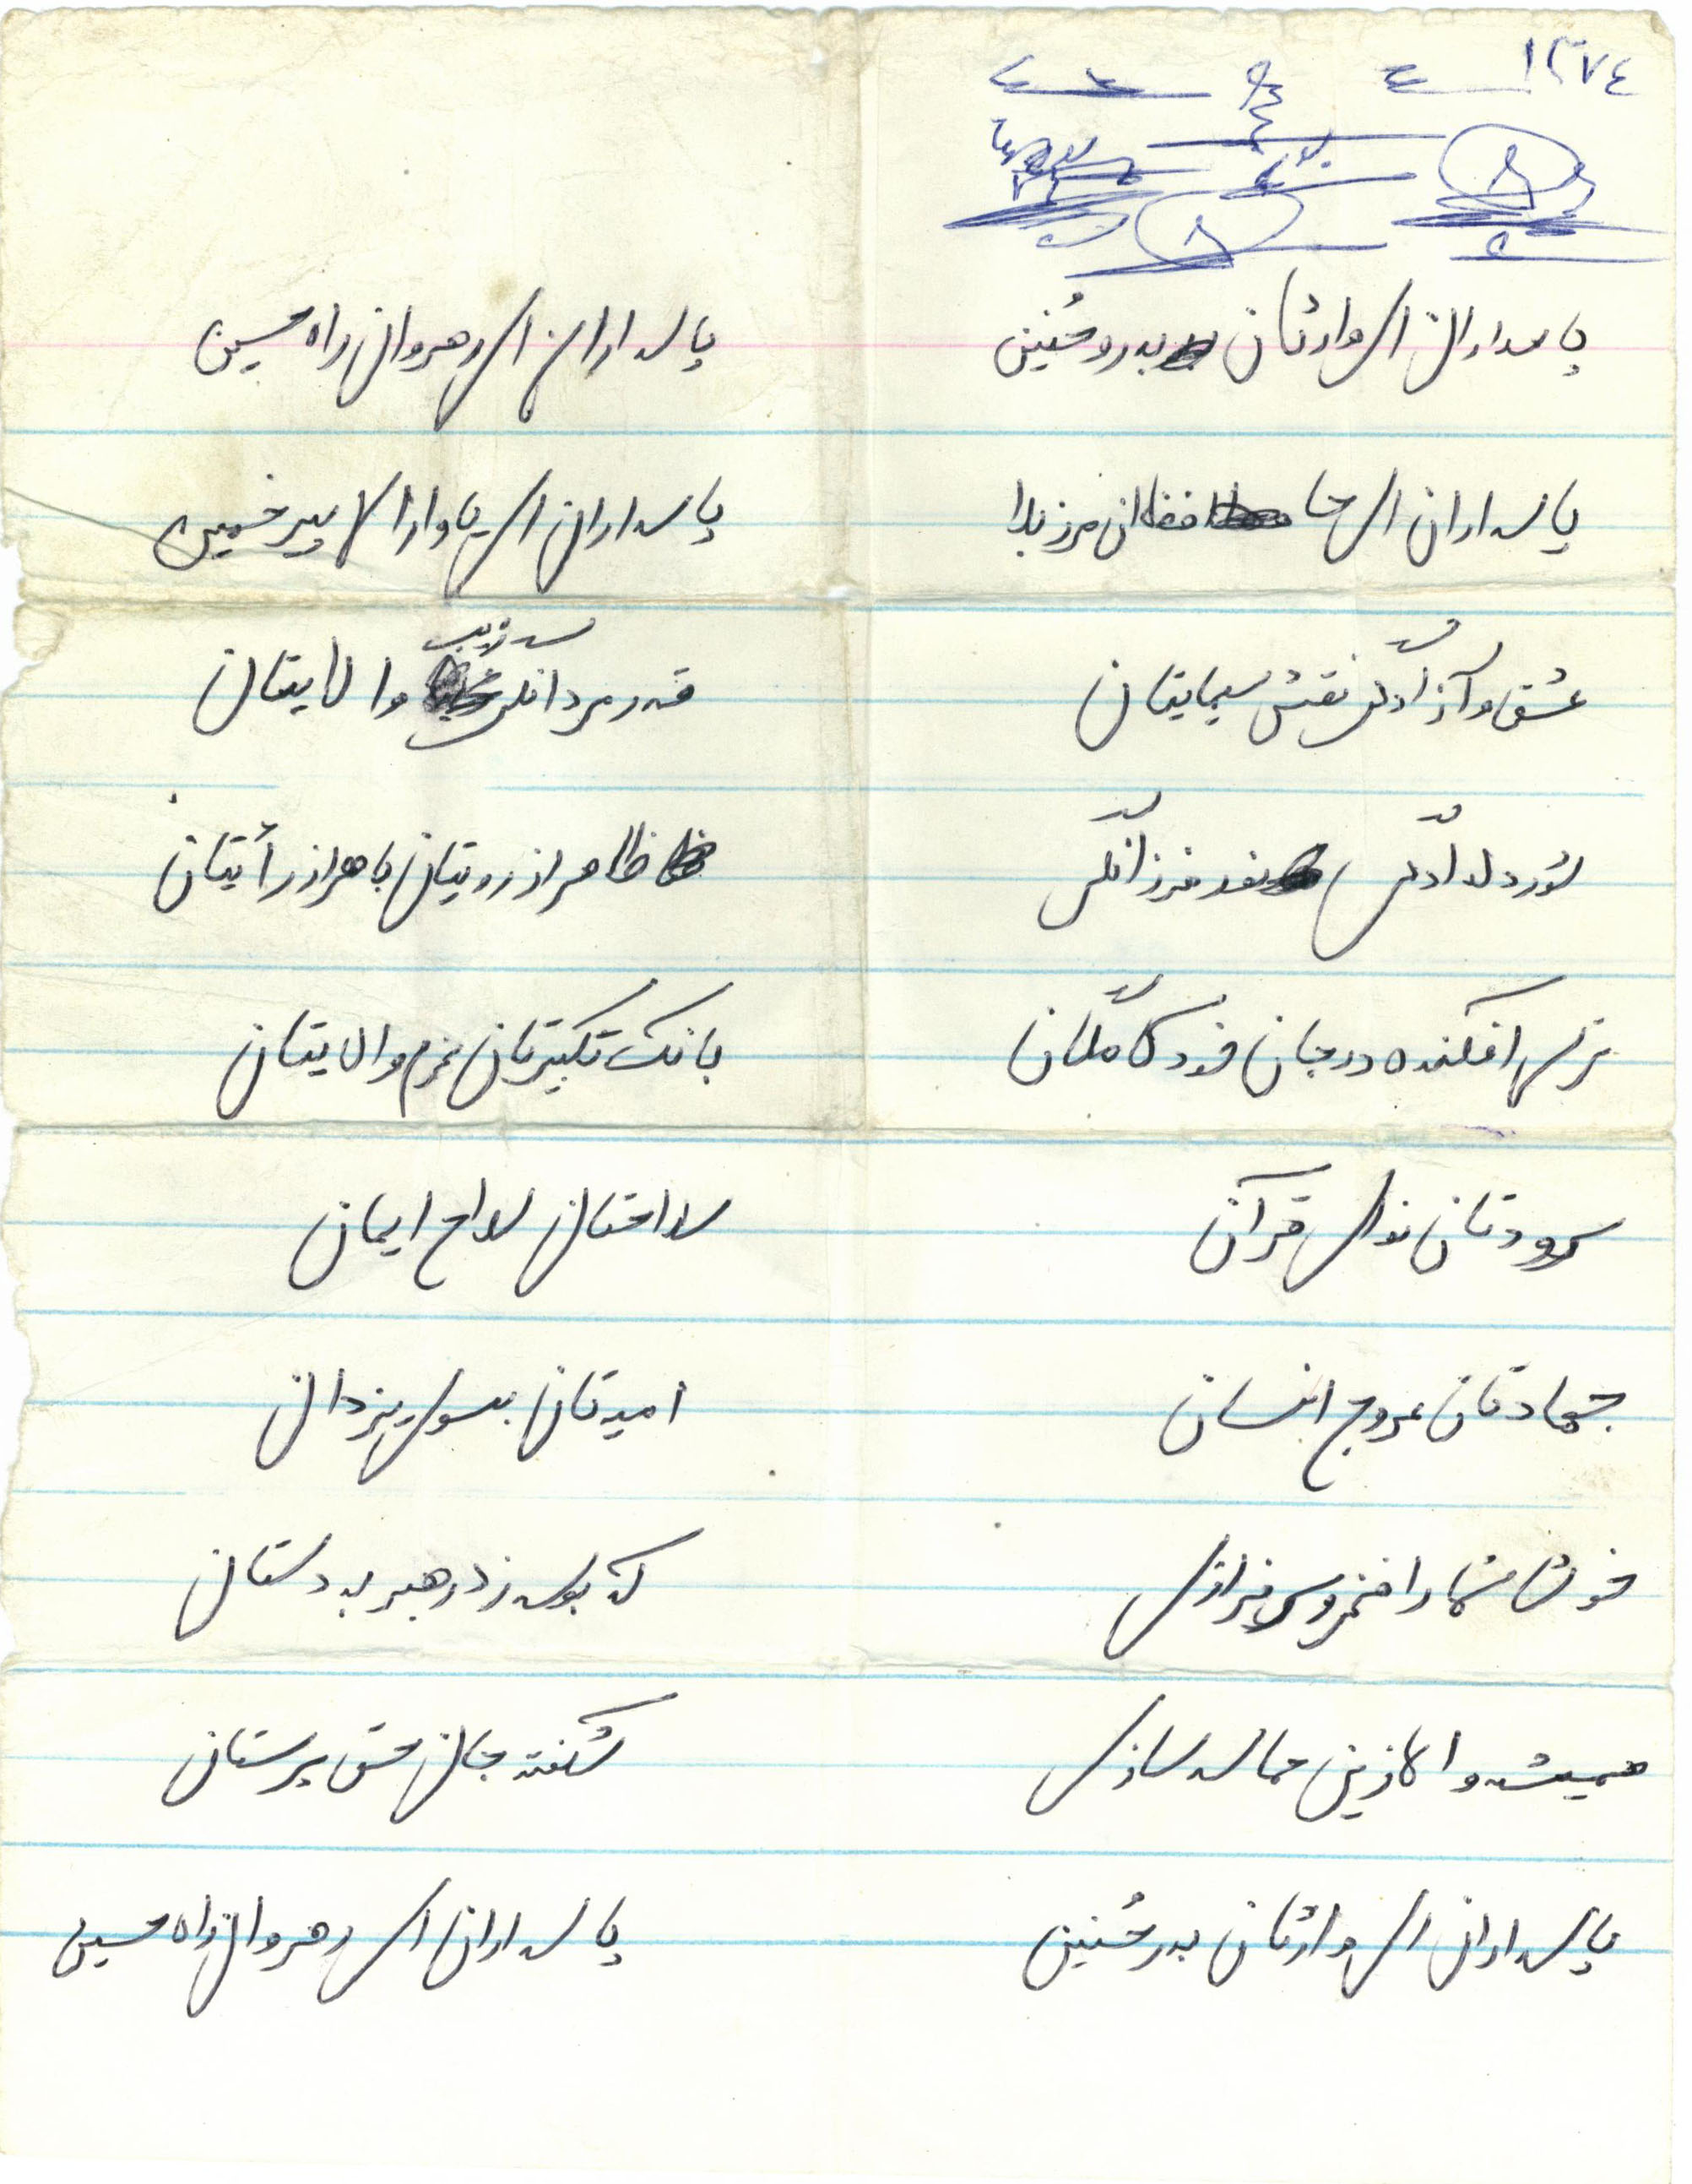 ۱۳۷۴
پاسداران ای وارثان بدر و حُنین
پاسداران ای رهروان راه حسین
پاسداران ای حافظان مرز بلا
پاسداران ای یاوران پیر خمین
عشق و آزادگی نقش سیمایتان
قدر مردانگی زیب والایتان
شور دلدادگی نقد فرزانگی
ظاهر از رویتان باهر از رأیتان
ترس افکنده در جان خودکامگان
بانگ تکبیرتان عزم والایتان
سرودتان نوای قرآن
سلاحتان سلاح ایمان
جهادتان عروج انسان
امیدتان بسوی یزدان
خوشا شما را خروس فرازی
که بوسه زد رهبر به دستان
همیشه والا زین حماسه سازی
شکفته جان حق پرستان
پاسداران ای وارثان بدر حُنین
پاسداران ای رهروان راه حسین